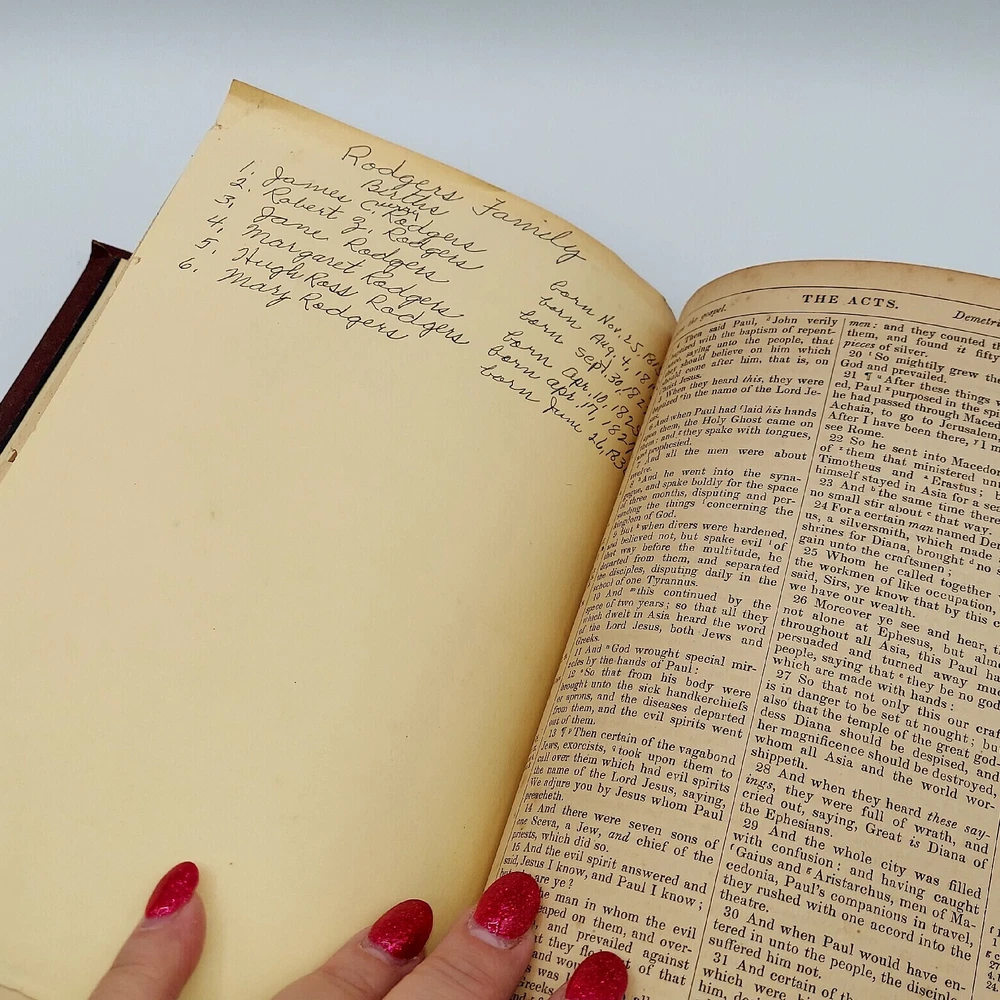 Rodgers Family
Births
1. James C. Rodgers born Nov. 25,
2. Robert Z. Rodgers born Aug. 4,
3. Jane Rodgers born Sept. 30,
4. Margaret Rodgers born Apr. 10, 1825
5. Hugh Ross Rodgers born Apr. 17,
6. Mary Rodgers born June 26,
the gospel. THE ACTS.
Then said Paul, John verily
baptized with the baptism of repent-
saying unto the people, that
should believe on him which
should come after him, that is, on
Jesus.
When they heard this, they were
baptized in the name of the Lord Je-
And when Paul had laid his hands
upon them, the Holy Ghost came on
them; and they spake with tongues,
and prophesied.
7 And all the men were about
twelve.
8 And he went into the syna-
gogue, and spake boldly for the space
of three months, disputing and per-
suading the things concerning the
kingdom of God.
9 But when divers were hardened,
and believed not, but spake evil of
that way before the multitude, he
departed from them, and separated
the disciples, disputing daily in the
school of one Tyrannus.
10 And this continued by the
space of two years; so that all they
which dwelt in Asia heard the word
of the Lord Jesus, both Jews and
Greeks.
11 And God wrought special mir-
acles by the hands of Paul:
12 So that from his body were
brought unto the sick handkerchiefs
or aprons, and the diseases departed
from them, and the evil spirits went
out of them.
13 ¶ Then certain of the vagabond
Jews, exorcists, took upon them to
call over them which had evil spirits
the name of the Lord Jesus, saying,
We adjure you by Jesus whom Paul
preacheth.
14 And there were seven sons of
one Sceva, a Jew, and chief of the
priests, which did so.
15 And the evil spirit answered and
said, Jesus I know, and Paul I know;
but who are ye?
the man in whom the evil
leaped on them, and over-
and prevailed against
that they fled out of that
and
was
Greeks
men: and they counted th
them, and found it fifty
pieces of silver.
20 So mightily grew the
God and prevailed.
21 ¶ After these things w
ed, Paul purposed in the sp
he had passed through Maced
Achaia, to go to Jerusalem
After I have been there, I m
see Rome.
22 So he sent into Macedon
of them that ministered un
Timotheus and Erastus; b
himself stayed in Asia for a sea
23 And the same time there
no small stir about that way.
24 For a certain man named Dem
us, a silversmith, which made s
shrines for Diana, brought no s
gain unto the craftsmen;
25 Whom he called together
the workmen of like occupation,
said, Sirs, ye know that by this c
we have our wealth.
26 Moreover ye see and hear, th
not alone at Ephesus, but almo
throughout all Asia, this Paul ha
persuaded and turned away muc
people, saying that they be no god
which are made with hands:
27 So that not only this our craf
is in danger to be set at nought; bu
also that the temple of the great god-
dess Diana should be despised, and
her magnificence should be destroyed,
whom all Asia and the world wor-
shippeth.
28 And when they heard these say-
ings, they were full of wrath, and
cried out, saying, Great is Diana of
the Ephesians.
29 And the whole city was filled
with confusion: and having caught
Gaius and Aristarchus, men of Ma-
cedonia, Paul's companions in travel,
they rushed with one accord into the
theatre.
30 And when Paul would have en-
tered in unto the people, the disciple
suffered him not.
31 And certain of the
which were his